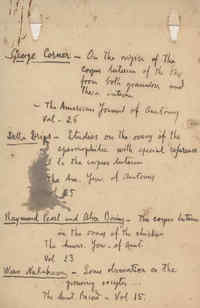 George Corner - On the origin of the
corpus luteum of the
from both granulosa and
theca interna
- The American Journal of Anatomy
Vol - 26
Della Drips - Studies on the ovary of the
spermophilus with special reference
to the corpus luteum
The Am. Jour. of Anatomy
25
Raymond Pearl and Alice Boring - The corpus luteum
in the ovary of the chicken
The Amer. Jou. of Anat.
Vol. 23
Waro Nakahara - Some observation on the
growing oocytes ...
The Anat. Record - Vol 15.